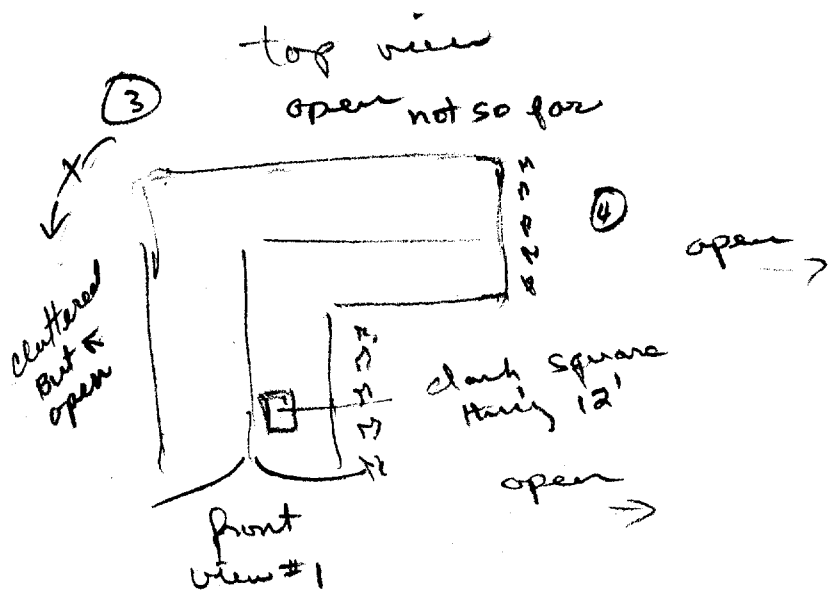 top view
③
open not so far
④
open
cluttered
But
open
dark square
thing 12'
open
front
view #1